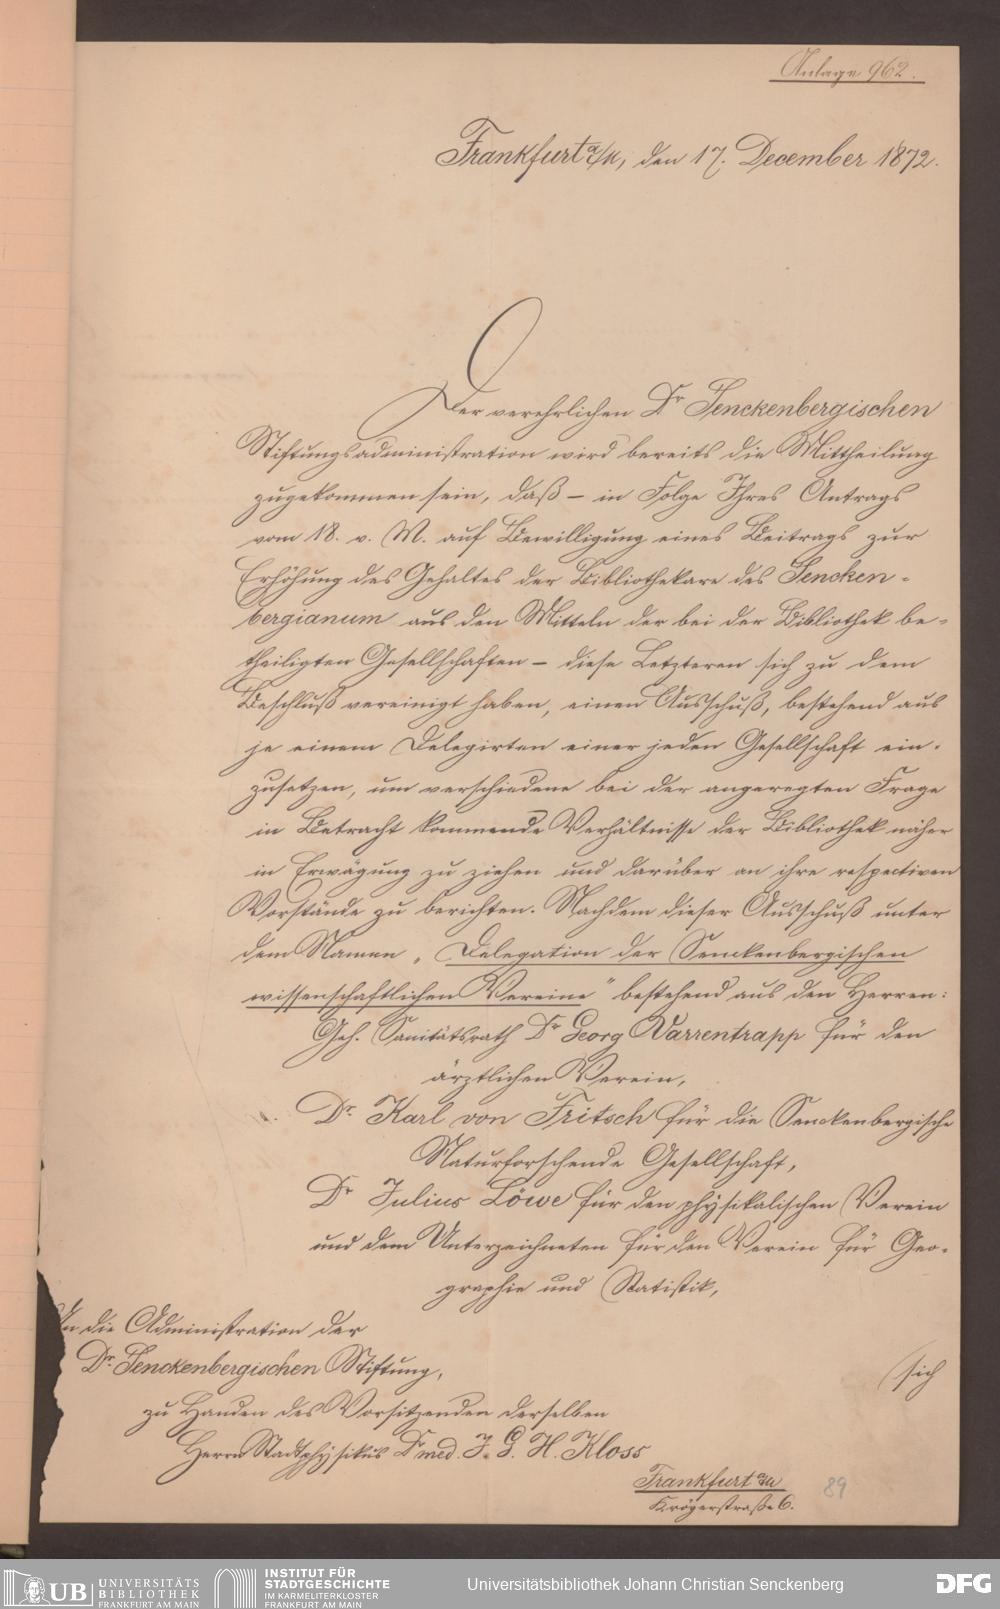 Anlage 962.
Frankfurt a/M, den 17. December 1872.
Der verehrlichen Dr Senckenbergischen
Stiftungsadministration wird bereits die Mittheilung
zugekommen sein, daß – in Folge Ihres Antrags
vom 18. v. M. auf Bewilligung eines Beitrags zur
Erhöhung des Gehaltes der Bibliothekare des Sencken-
bergianum aus den Mitteln der bei der Bibliothek be-
theiligten Gesellschaften – diese Letzteren sich zu dem
Beschluß vereinigt haben, einen Ausschuß, bestehend aus
je einem Delegirten einer jeden Gesellschaft ein-
zusetzen, um verschiedene bei der angeregten Frage
in Betracht kommende Verhältnisse der Bibliothek näher
in Erwägung zu ziehen und darüber an ihre respectiven
Vorstände zu berichten. Nachdem dieser Ausschuß unter
dem Namen „Delegation der Senckenbergischen
wissenschaftlichen Vereine" bestehend aus den Herren:
Geh. Sanitätsrath Dr Georg Varrentrapp für den
ärztlichen Verein,
Dr. Karl von Fritsch für die Senckenbergische
Naturforschende Gesellschaft,
Dr Julius Löwe für den physikalischen Verein
und dem Unterzeichneten für den Verein für Geo-
graphie und Statistik,
sich
An die Administration der
Dr. Senckenbergischen Stiftung,
zu Handen des Vorsitzenden derselben
Herrn Stadtphysikus Dr med. J. G. H. Kloss
Frankfurt a/M
Krögerstraße 6.
89
UB UNIVERSITÄTS
BIBLIOTHEK
FRANKFURT AM MAIN
INSTITUT FÜR
STADTGESCHICHTE
IM KARMELITERKLOSTER
FRANKFURT AM MAIN
Universitätsbibliothek Johann Christian Senckenberg
DFG